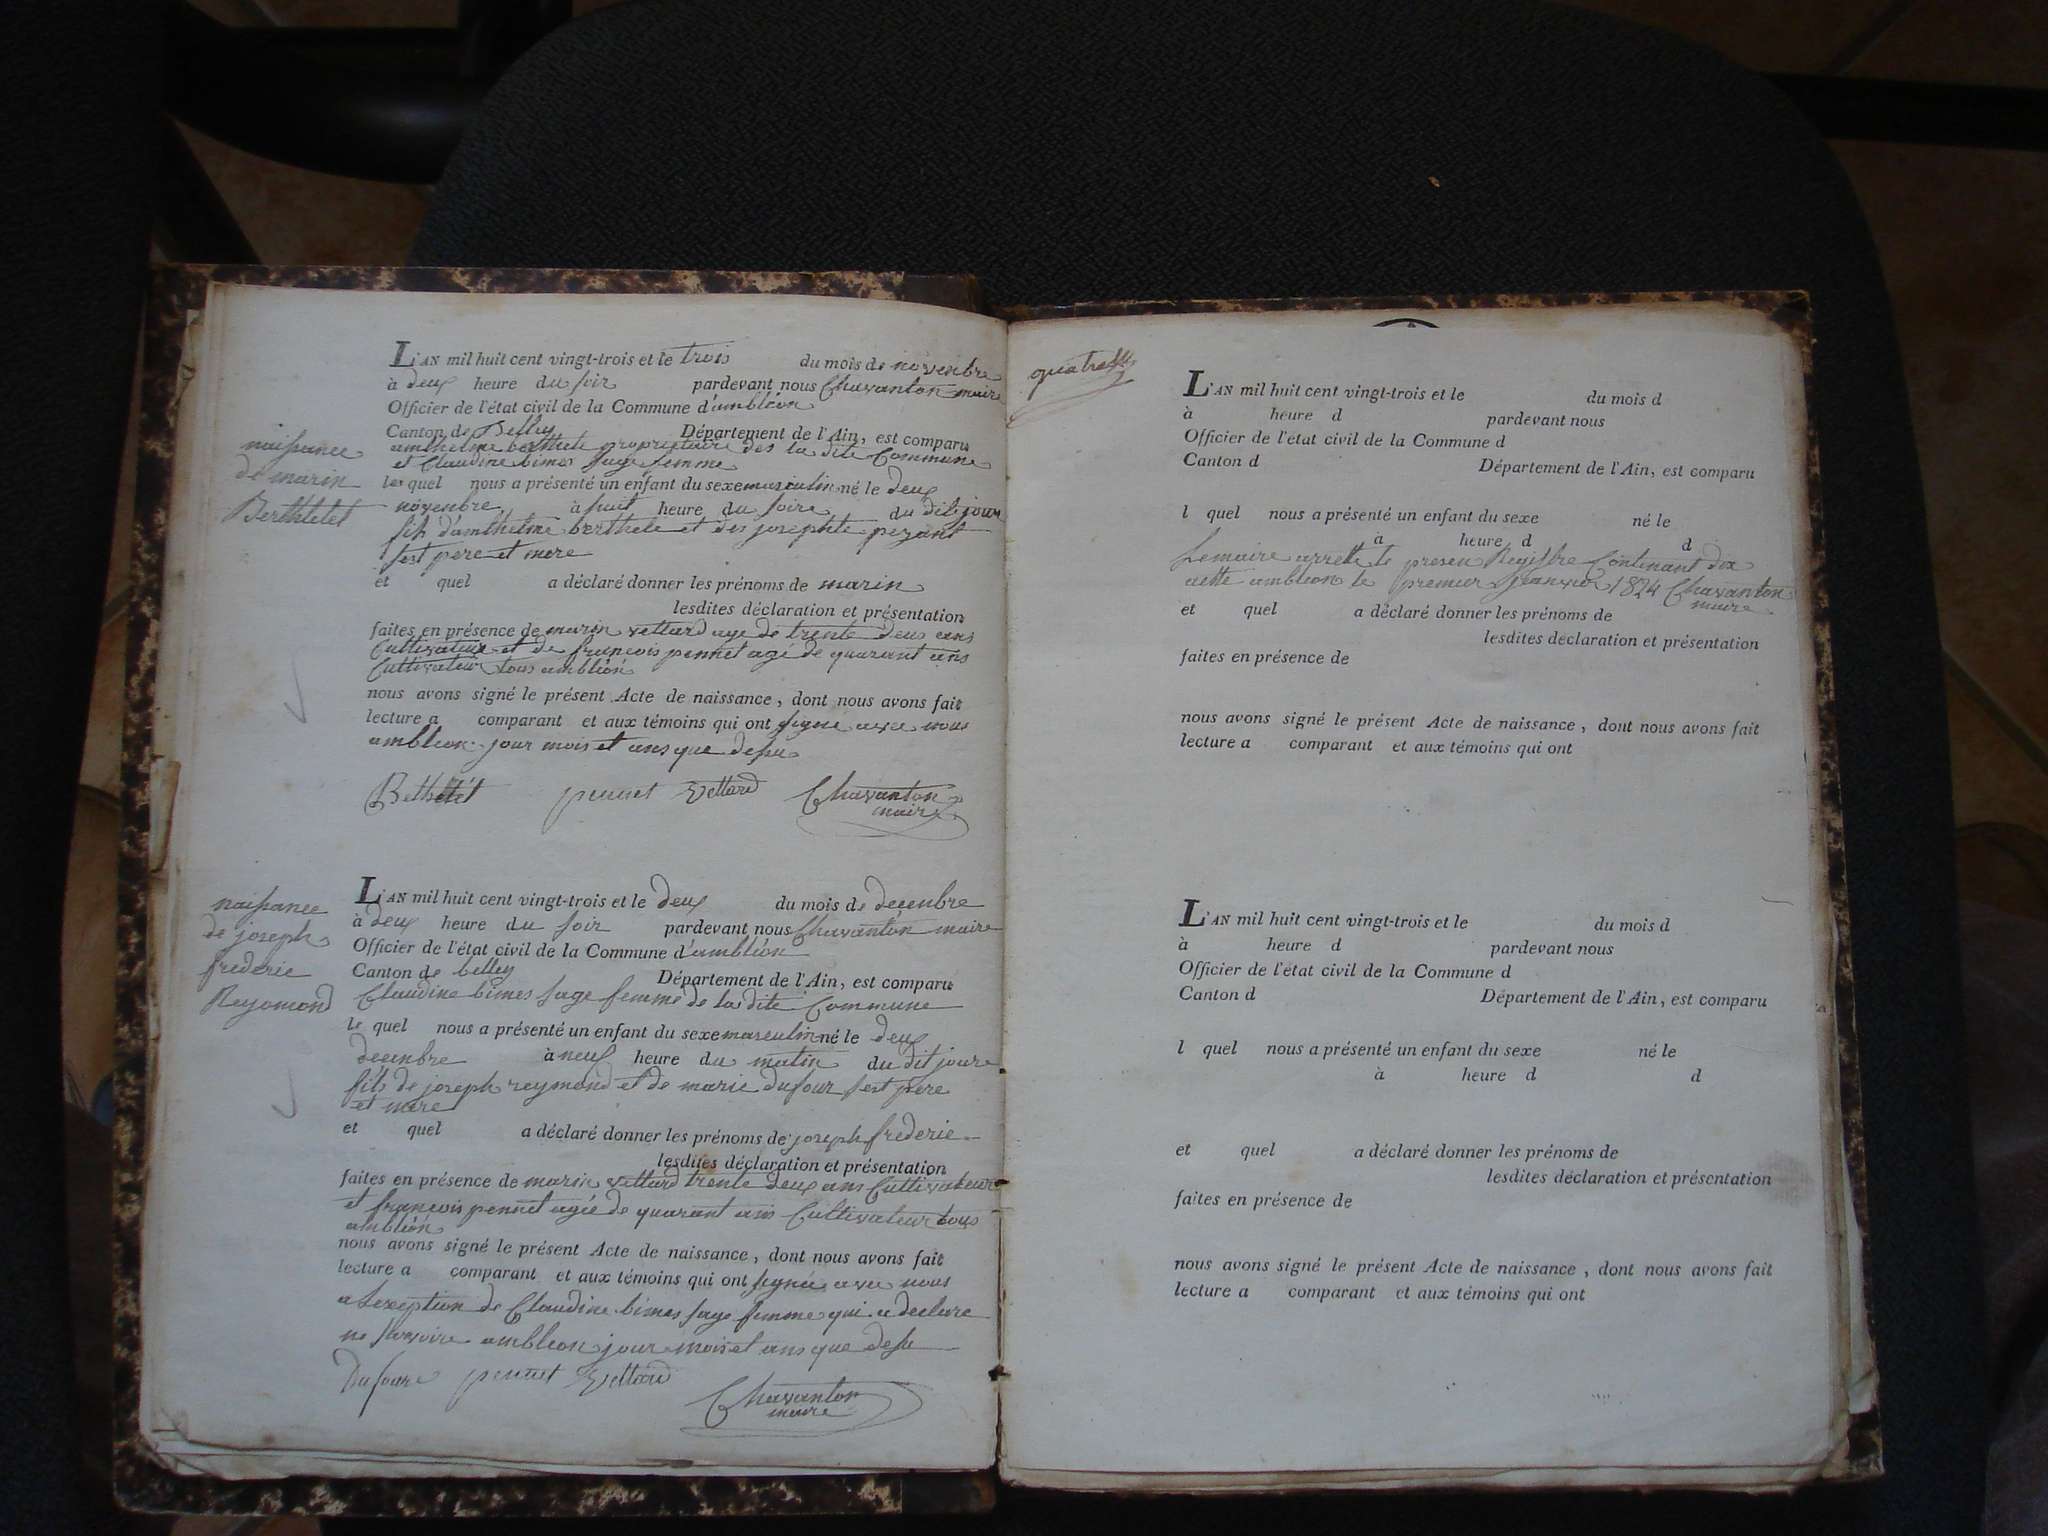 naissance
de marin
Berthelet
L'AN mil huit cent vingt-trois et le trois du mois de novenbre
à deux heure du soir pardevant nous Chavanton maire
Officier de l'état civil de la Commune d'ambléon
Canton de Belley Département de l'Ain, est comparu
anthelme berthele proprietaire des la dite Commune
et Claudine bimes sage femme
les quel nous a présenté un enfant du sexe masculin né le deux
novenbre à huit heure du soire du dit jour
fils d'anthelme berthele et des josephte pezant
sest pere et mere
et quel a déclaré donner les prénoms de marin
lesdites déclaration et présentation
faites en présence de marin vettard age de trente deux ans
Cultivateur et de françois pennet agé de quarant ans
Cultivateur tous ambléon
nous avons signé le présent Acte de naissance, dont nous avons fait
lecture a comparant et aux témoins qui ont signé avec nous
ambleon jour mois et ans que desu
Bethelet pennet Vettard Chavanton
maire
naissance
de joseph
frederic
Reyomond
L'AN mil huit cent vingt-trois et le deux du mois de decenbre
à deux heure du soir pardevant nous Chavanton maire
Officier de l'état civil de la Commune d'ambléon
Canton de belley Département de l'Ain, est comparu
Claudine bimes sage femme de la dite Commune
le quel nous a présenté un enfant du sexe masculin né le deux
decenbre à neuf heure du matin du dit joure
fils de joseph reymond et de marie dufour sest pere
et mere
et quel a déclaré donner les prénoms de joseph frederic
lesdites déclaration et présentation
faites en présence de marin vettard trente deux ans Cultivateur
et françois pennet agée de quarant ans Cultivateur tous
ambléon
nous avons signé le présent Acte de naissance, dont nous avons fait
lecture a comparant et aux témoins qui ont signé avec nous
a lexeption de Claudine bimes sage femme qui a declare
ne savoire ambleon jour mois et ans que desu
Dufoure pennet Vettard
Chavanton
maire
L'AN mil huit cent vingt-trois et le du mois d
à heure d pardevant nous
Officier de l'état civil de la Commune d
Canton d Département de l'Ain, est comparu
l quel nous a présenté un enfant du sexe né le
à heure d d
Lemaire arrette le presen Registre Contenant
ambleon le premier janvier 1824 Chavanton
maire
et quel a déclaré donner les prénoms de
lesdites déclaration et présentation
faites en présence de
nous avons signé le présent Acte de naissance, dont nous avons fait
lecture a comparant et aux témoins qui ont
L'AN mil huit cent vingt-trois et le du mois d
à heure d pardevant nous
Officier de l'état civil de la Commune d
Canton d Département de l'Ain, est comparu
l quel nous a présenté un enfant du sexe né le
à heure d d
et quel a déclaré donner les prénoms de
lesdites déclaration et présentation
faites en présence de
nous avons signé le présent Acte de naissance, dont nous avons fait
lecture a comparant et aux témoins qui ont